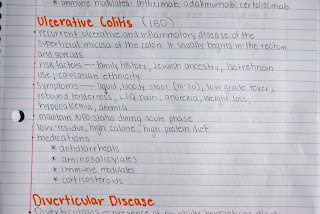 * immune modulates: infliximab, adalimumab, certolizomab
Ulcerative Colitis (IBD)
• recurrent ulcerative and inflammatory disease of the
superficial mucosa of the colon. It usually begins in the rectum
and spreads
• risk factors — family history, Jewish ancestry, isotretinoin
use, caucasian ethnicity
• symptoms — liquid, bloody stool (10-20), low grade fever,
rebound tenderness, LLQ pain, anorexia, weight loss,
hypocalcemia, anemia
• maintain NPO status during acute phase
• low-residue, high calorie, high protein diet
• medications
* antidiarrheals
* aminosalicylates
* immune modulates
* corticosteroids
Diverticular Disease
• Diverticulosis — presence of